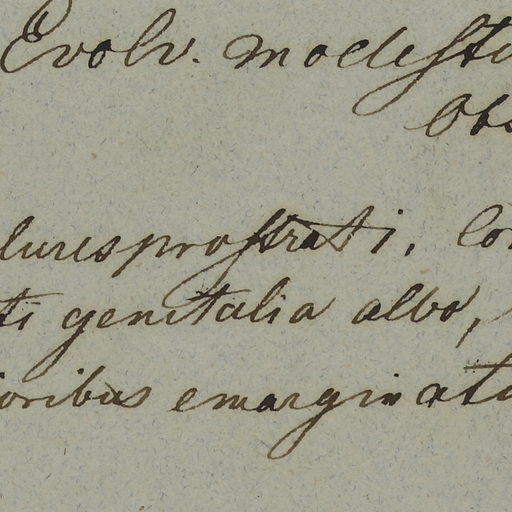 Evolv. modesti
Obs
lures prostrati, Cor
ti genitalia albo,
oribus emarginati